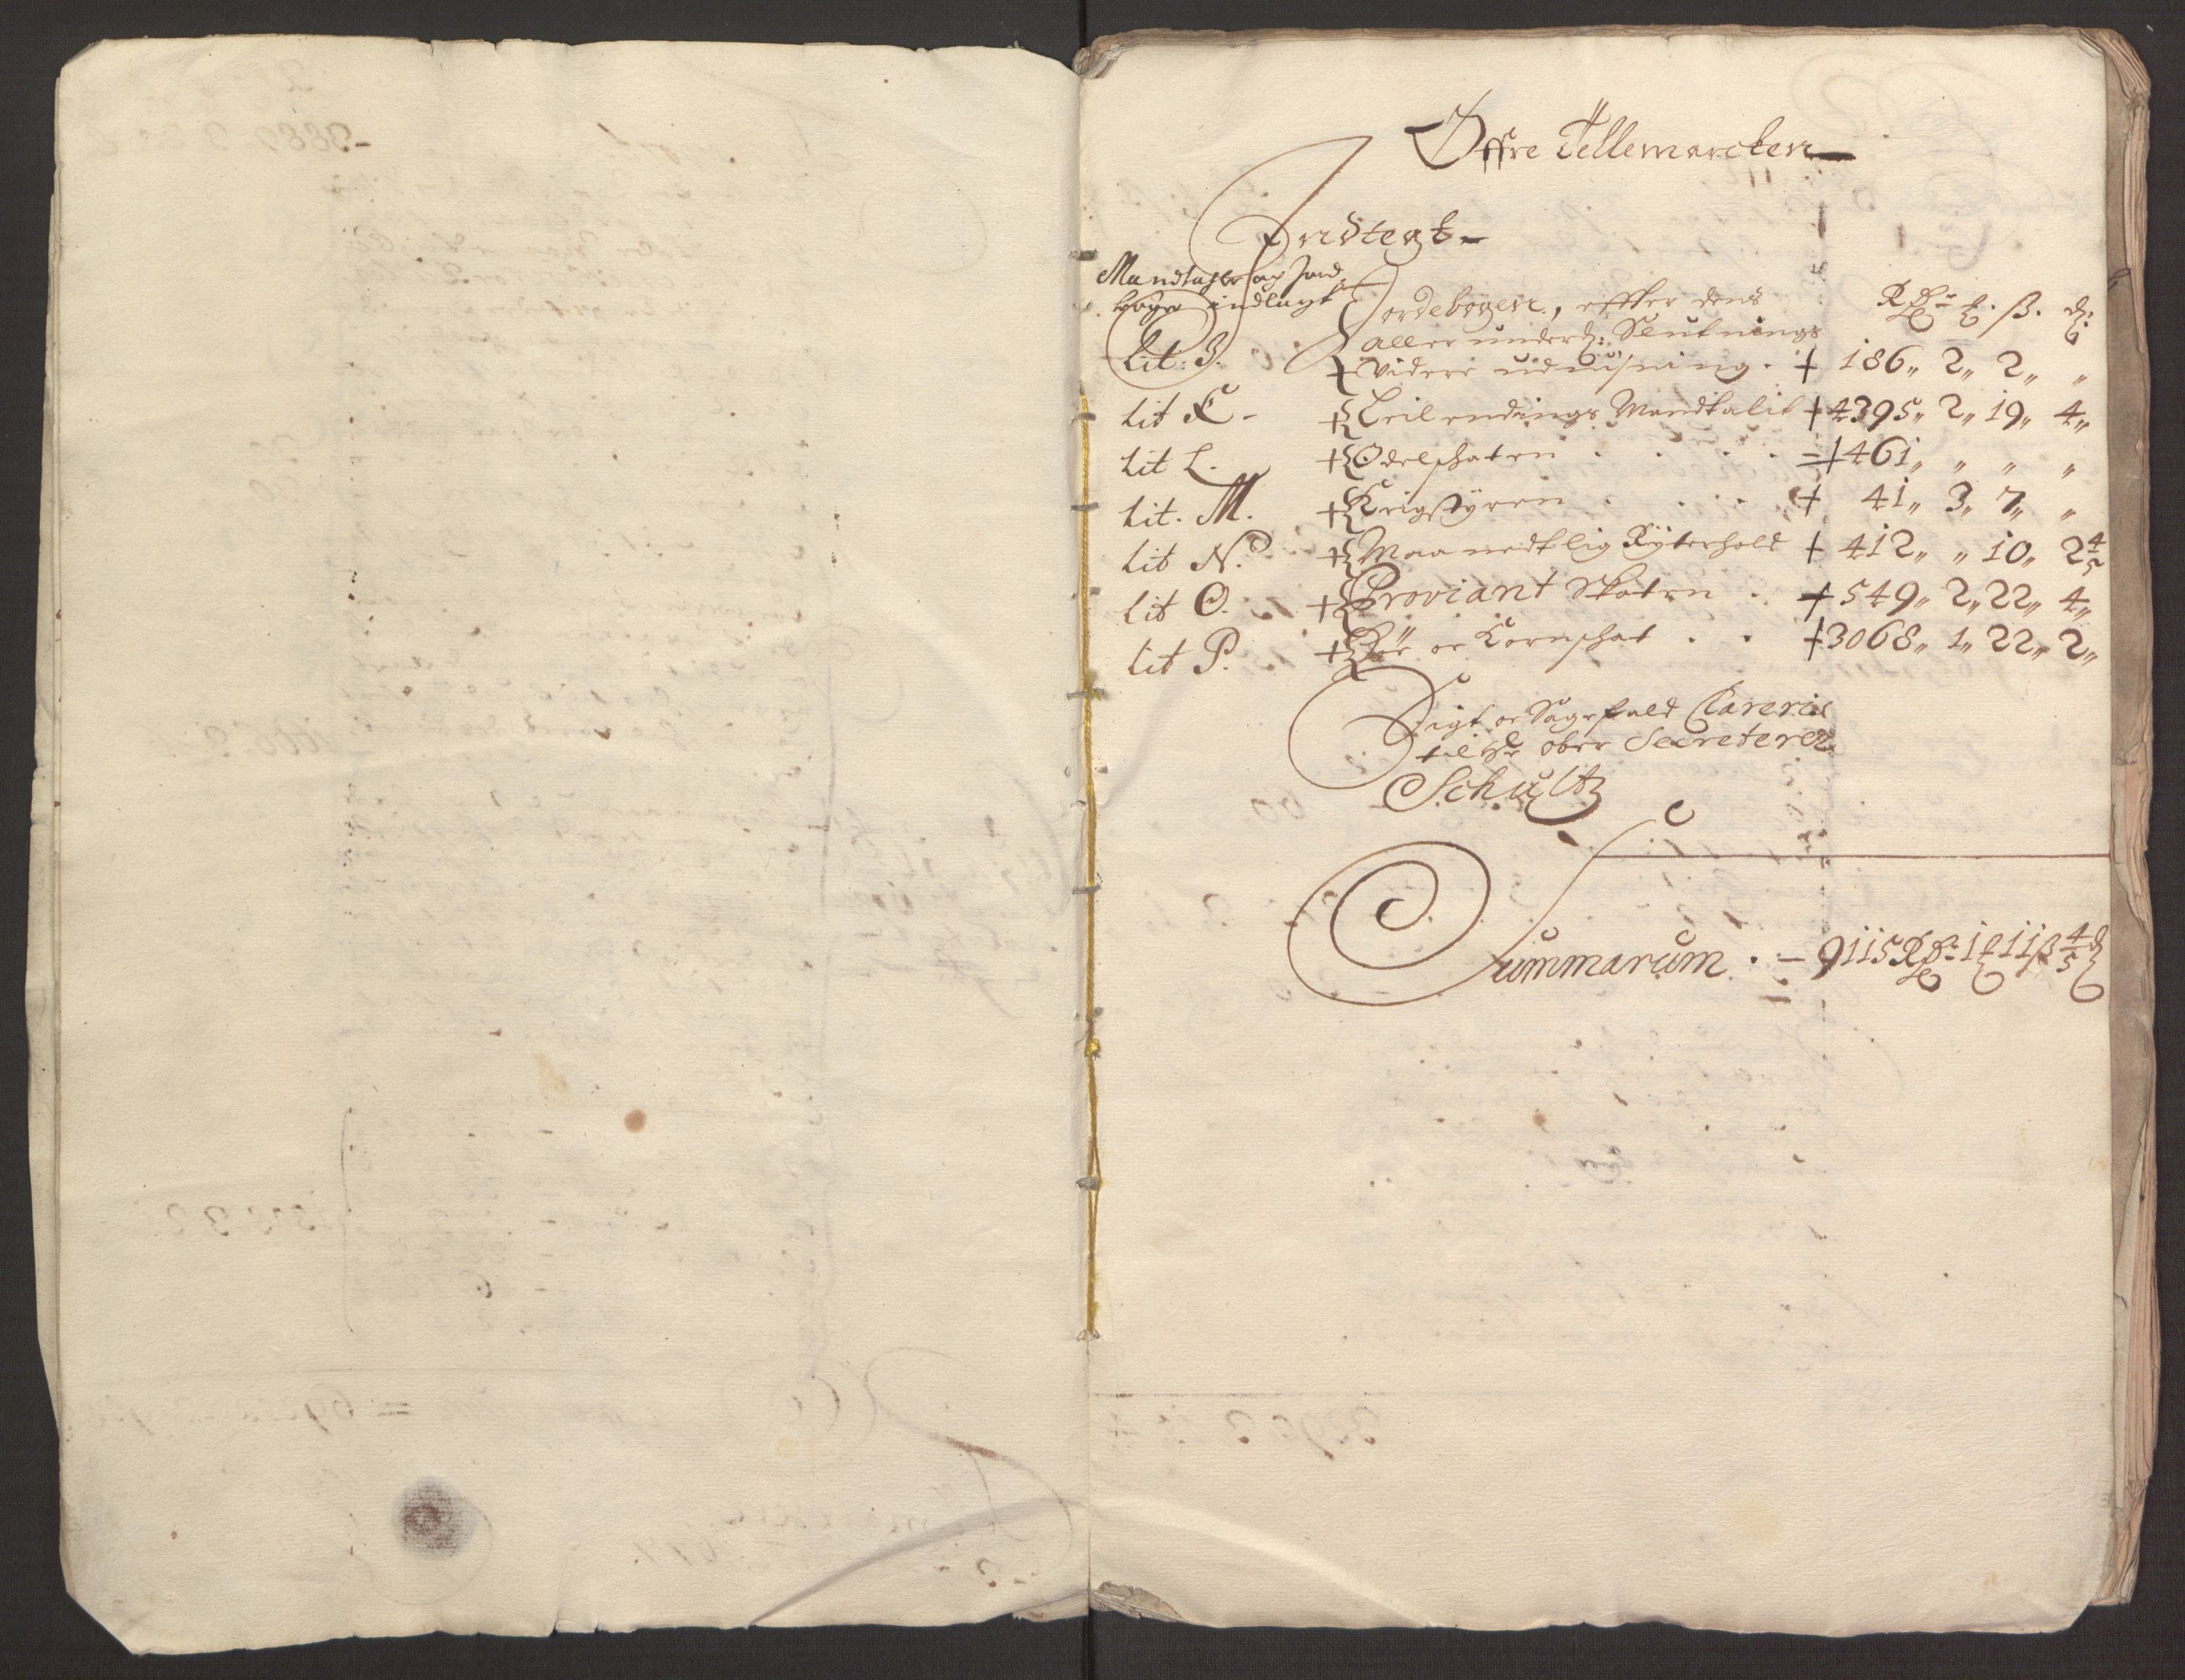 Øffre Tellemarcken
Indtegt
Mandtaller og Jord
bøger indlagt Jordebogen, effter dens R𝔡r ₰. ß. ₰:
aller underd: Slutnings
Lit: J. videre udviisning. 186„ 2„ 2„ „
Lit K - Leilendings Mandtalit 4395„ 2„ 19„ 4„
Lit L. Odelschaten . . . . 461„ „ „ „
Lit. M. Krigstyren . . . . 41„ 3„ 7„ „
Lit N. Maanedtlig Rÿterhold 412„ „ 10„ 2 4/5
Lit O. Proviant Skaten . 549„ 2„ 22„ 4„
Lit P. Foer oc Kornschat . . 3068„ 1„ 22„ 2„
Sigt oc Sagefald Clareris
til Hr ober Secreterer
Schultz
Summarum . - 9115 Rdr 1 ₰ 11 ß 4/5 ₰